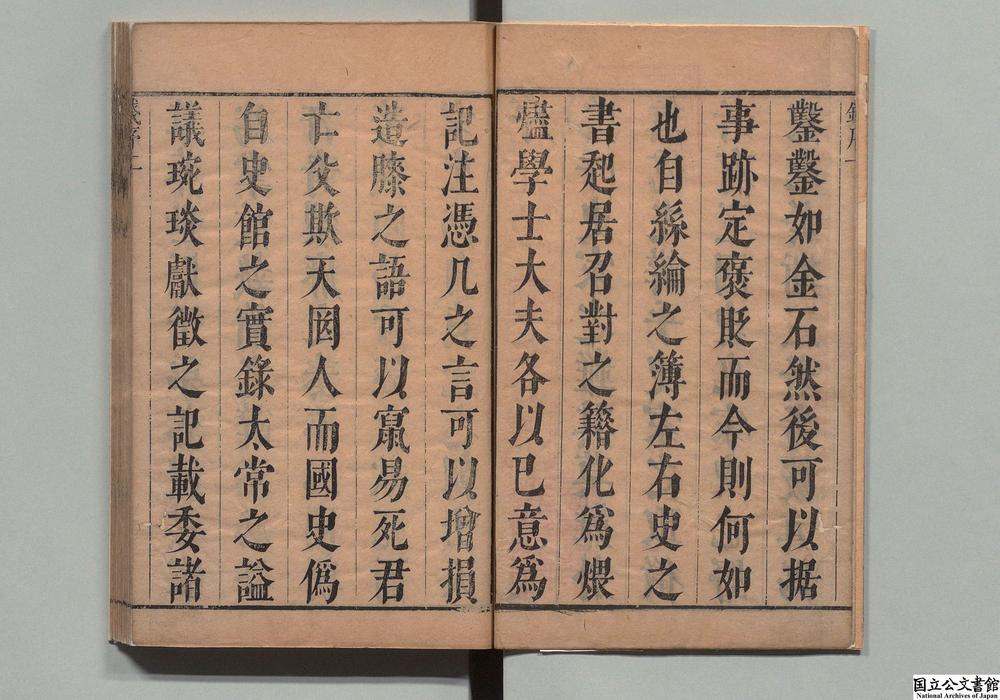 鑿鑿如金石然後可以据
事跡定褒貶而今則何如
也自絲綸之簿左右史之
書起居召對之籍化為煨
燼學士大夫各以已意為
記注憑几之言可以增損
造膝之語可以竄易死君
亡父欺天罔人而國史偽
自史館之實錄太常之謚
議琬琰獻徵之記載委諸
国立公文書館
National Archives of Japan